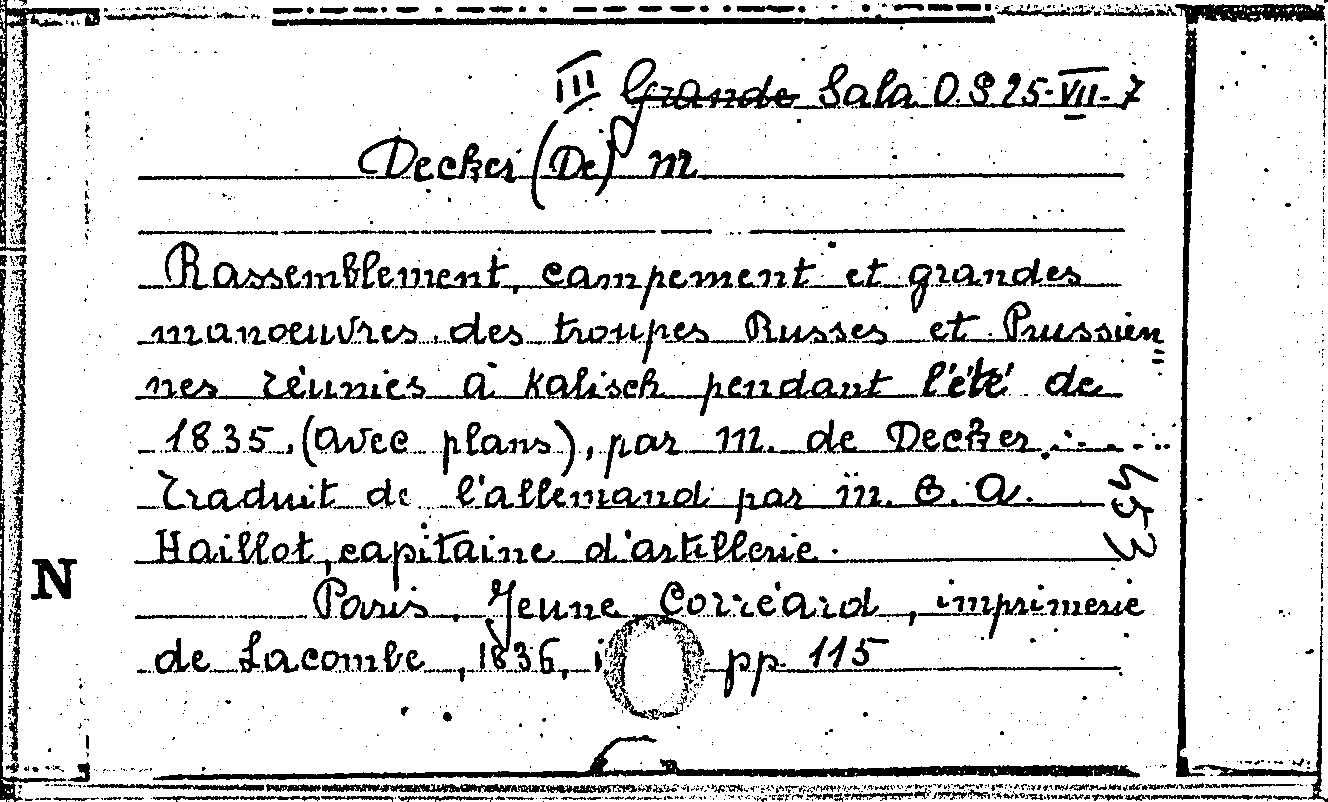 III Grande Sala O.S 25-VII-7
Decker (De) M.
Rassemblement, campement et grandes
manoeuvres des troupes Russes et Prussien=
nes réunies à Kalisch pendant l'été de
1835, (avec plans), par M. de Decker.....
Traduit de l'allemand par M. E. A.
Haillot, capitaine d'artillerie.
Paris, Jeune Corréard, imprimerie
de Lacombe, 1836, i pp. 115
453
N